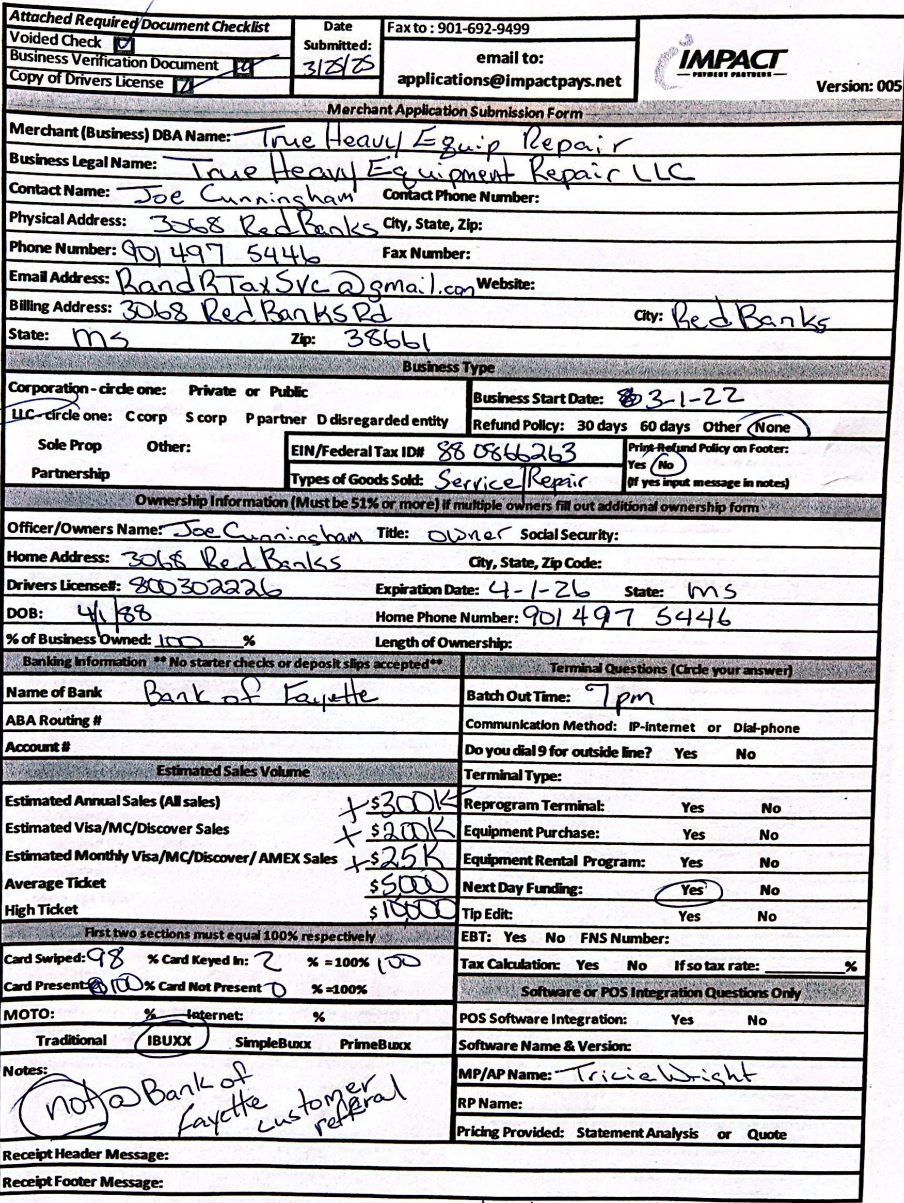 Attached Required Document Checklist
Voided Check
Business Verification Document
Copy of Drivers License
Date Submitted:
3/25/25
Fax to : 901-692-9499
email to:
applications@impactpays.net
IMPACT
PAYMENT PARTNERS
Version: 005
Merchant Application Submission Form
Merchant (Business) DBA Name: True Heavy Equip Repair
Business Legal Name: True Heavy Equipment Repair LLC
Contact Name: Joe Cunningham Contact Phone Number:
Physical Address: 3068 Red Banks City, State, Zip:
Phone Number: 901 497 5446 Fax Number:
Email Address: RandRTaxSvc@gmail.com Website:
Billing Address: 3068 Red Banks Rd City: Red Banks
State: ms Zip: 38661
Business Type
Corporation - circle one: Private or Public
LLC - circle one: C corp S corp P partner D disregarded entity
Sole Prop Other:
Partnership
Business Start Date: 3-1-22
Refund Policy: 30 days 60 days Other None
EIN/Federal Tax ID# 88 0866263
Types of Goods Sold: Service/Repair
Print Refund Policy on Footer:
Yes No
(If yes input message in notes)
Ownership Information (Must be 51% or more) if multiple owners fill out additional ownership form
Officer/Owners Name: Joe Cunningham Title: owner Social Security:
Home Address: 3068 Red Banks City, State, Zip Code:
Drivers License#: 800302226 Expiration Date: 4-1-26 State: ms
DOB: 4/1/88 Home Phone Number: 901 497 5446
% of Business Owned: 100 % Length of Ownership:
Banking Information ** No starter checks or deposit slips accepted**
Name of Bank Bank of Fayette
ABA Routing #
Account #
Estimated Sales Volume
Estimated Annual Sales (All sales) + $300K
Estimated Visa/MC/Discover Sales + $200K
Estimated Monthly Visa/MC/Discover/ AMEX Sales + $25K
Average Ticket $5000
High Ticket $10,000
First two sections must equal 100% respectively
Card Swiped: 98 % Card Keyed In: 2 % =100% 100
Card Present: 100 % Card Not Present 0 % =100%
MOTO: % Internet: %
Traditional IBUXX SimpleBuxx PrimeBuxx
Notes:
not a Bank of
Fayette customer
referal
Terminal Questions (Circle your answer)
Batch Out Time: 7pm
Communication Method: IP-internet or Dial-phone
Do you dial 9 for outside line? Yes No
Terminal Type:
Reprogram Terminal: Yes No
Equipment Purchase: Yes No
Equipment Rental Program: Yes No
Next Day Funding: Yes No
Tip Edit: Yes No
EBT: Yes No FNS Number:
Tax Calculation: Yes No If so tax rate: %
Software or POS Integration Questions Only
POS Software Integration: Yes No
Software Name & Version:
MP/AP Name: Tricia Wright
RP Name:
Pricing Provided: Statement Analysis or Quote
Receipt Header Message:
Receipt Footer Message: